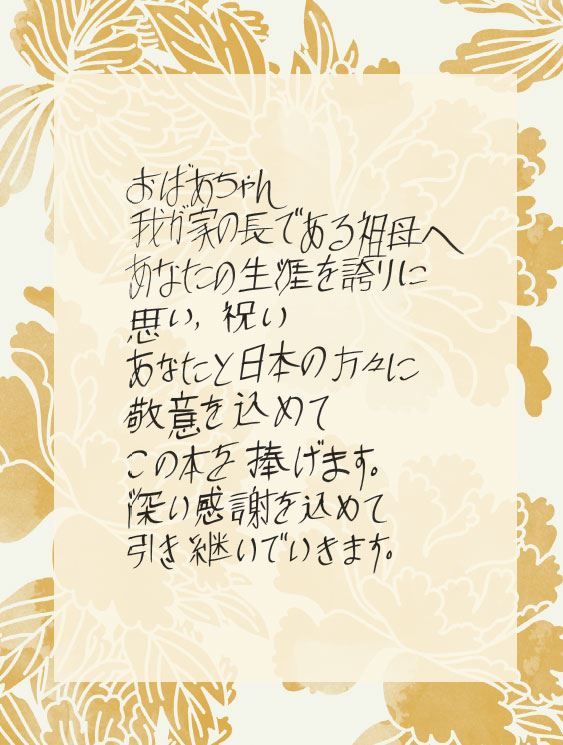 おばあちゃん
我が家の長である祖母へ
あなたの生涯を誇りに
思い, 祝い
あなたと日本の方々に
敬意を込めて
この本を捧げます。
深い感謝を込めて
引き継いでいきます。